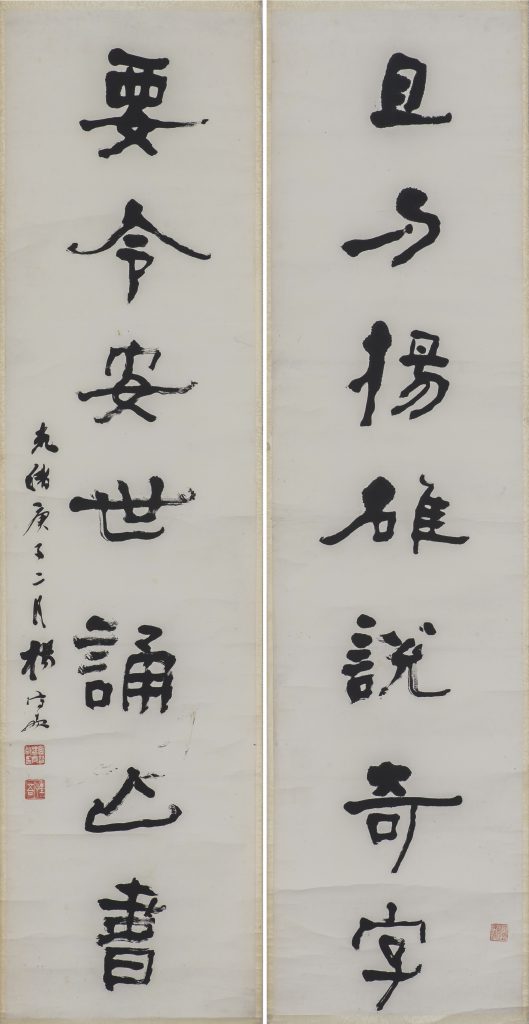 且与揚雄說奇字
要令安世誦亡書
光緒庚子二月楊守敬